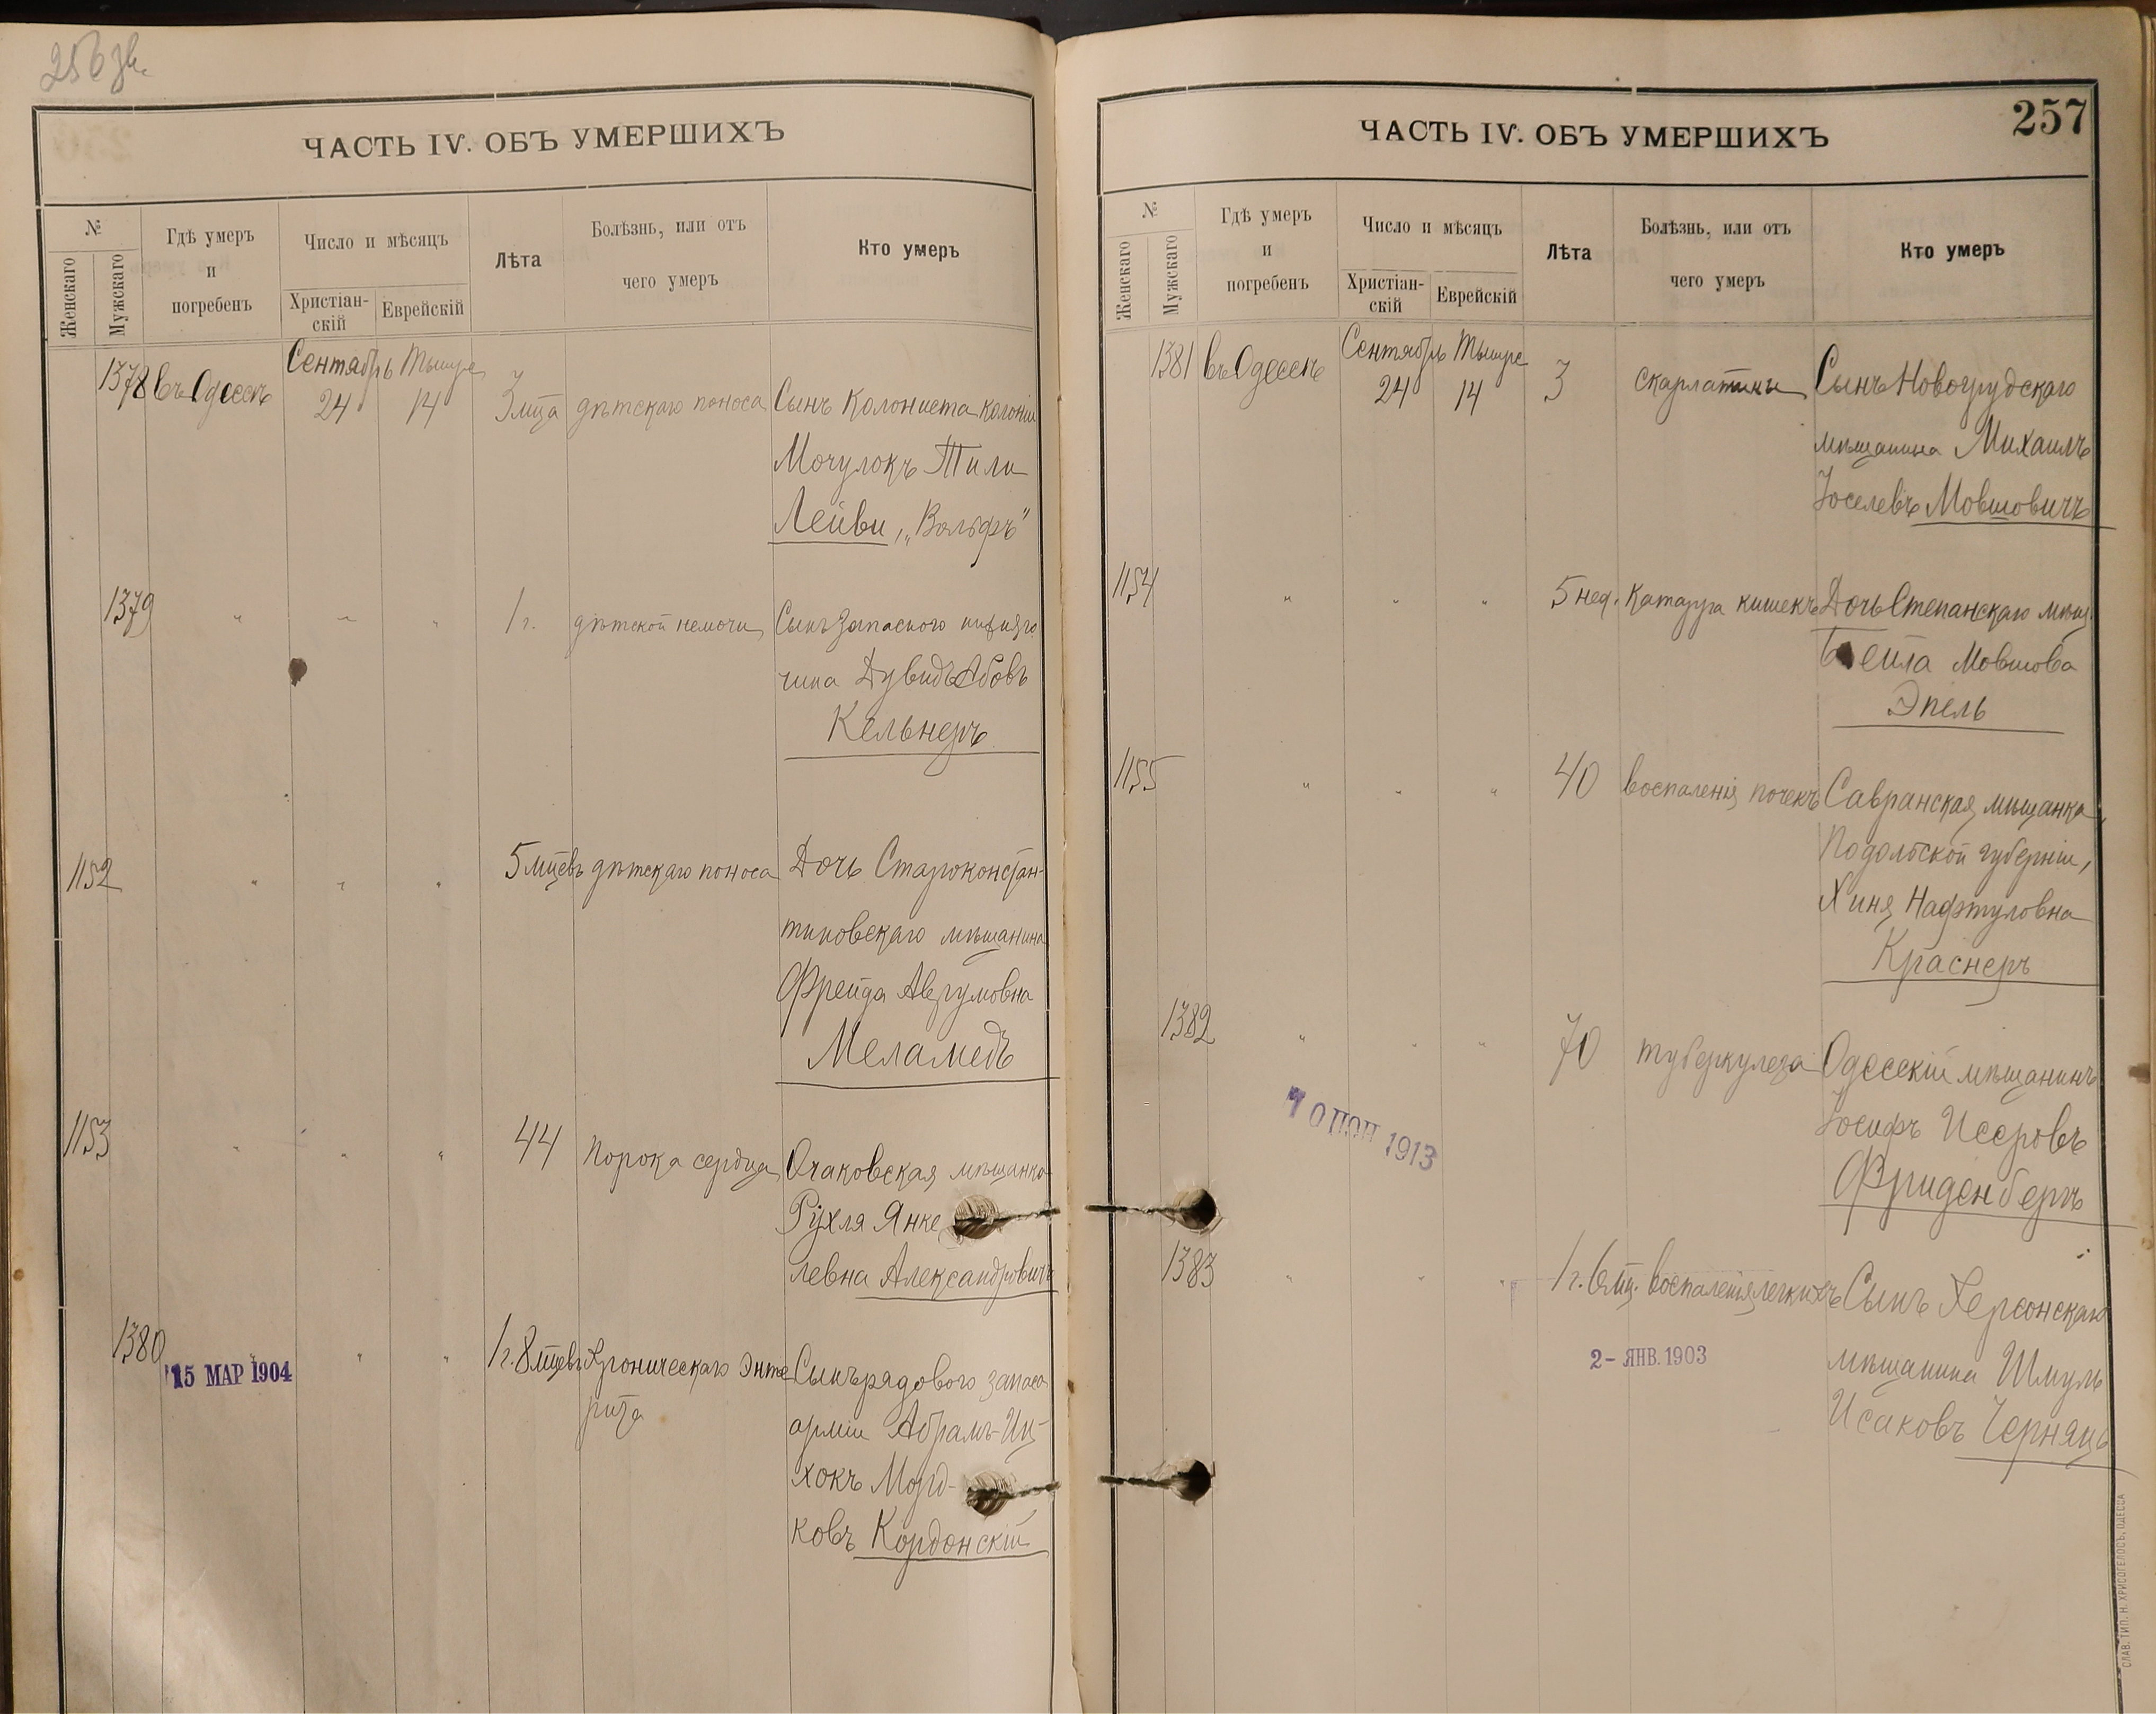 256 зв.
ЧАСТЬ IV. ОБЪ УМЕРШИХЪ
№
Женскаго
Мужскаго
Гдѣ умеръ
и
погребенъ
Число и мѣсяцъ
Христіан-
скій
Еврейскій
Лѣта
Болѣзнь, или отъ
чего умеръ
Кто умеръ
1378 въ Одессѣ Сентябрь 24 Тышре 14 3 мца дѣтскаго поноса Сынъ колониста колоніи
Мочулокъ Тили
Лейви, „Вольфъ"
1379 " " " 1 г. дѣтской немочи Сынъ запаснаго нижняго
чина Дувидъ Абовъ
Кельнеръ
1152 " " " 5 мцевъ дѣтскаго поноса Дочь Староконстан-
тиновскаго мѣщанина
Фрейда Аврумовна
Меламедъ
1153 " " " 44 Порока сердца Очаковская мѣщанка
Рухля Янке
левна Александровичъ
1380 " " " 1 г. 8 мцевъ Хроническаго энте Сынъ рядового запаса
рита
15 МАР 1904
арміи Абрамъ-Иц-
хокъ Морд-
ковъ Кордонскій
257
ЧАСТЬ IV. ОБЪ УМЕРШИХЪ
№
Женскаго
Мужскаго
Гдѣ умеръ
и
погребенъ
Число и мѣсяцъ
Христіан-
скій
Еврейскій
Лѣта
Болѣзнь, или отъ
чего умеръ
Кто умеръ
1381 въ Одессѣ Сентябрь 24 Тышре 14 3 скарлатины Сынъ Новогрудскаго
мѣщанина Михаилъ
Іоселевъ Мовшовичъ
1154 " " " 5 нед. Катарра кишекъ Дочь Степанскаго мѣщ.
Бейла Мовшова
Эпель
1155 " " " 40 воспаленія почекъ Савранская мѣщанка,
Подольской губерніи,
Хиня Нафтуловна
Краснеръ
1382 " " " 70 туберкулеза Одесскій мѣщанинъ
Іосифъ Исеровъ
Фриденбергъ
1913
1383 " " " 1 г. 6 мц. воспаленія легкихъ Сынъ Херсонскаго
мѣщанина Шмуль
Исаковъ Чернякъ
2- ЯНВ. 1903
СЛАВ. ТИП. Н. ХРИСОГЕЛОСЪ, ОДЕССА